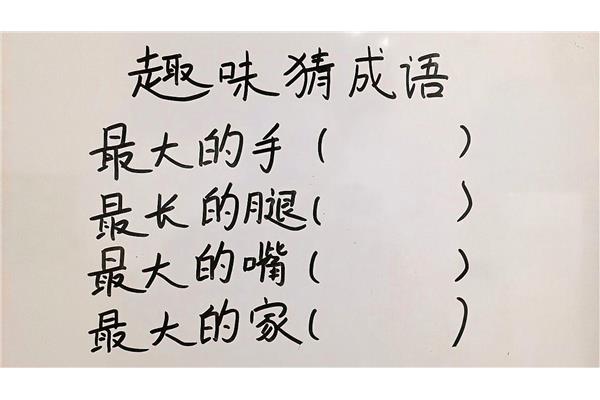 趣味猜成语
最大的手（ ）
最长的腿（ ）
最大的嘴（ ）
最大的家（ ）